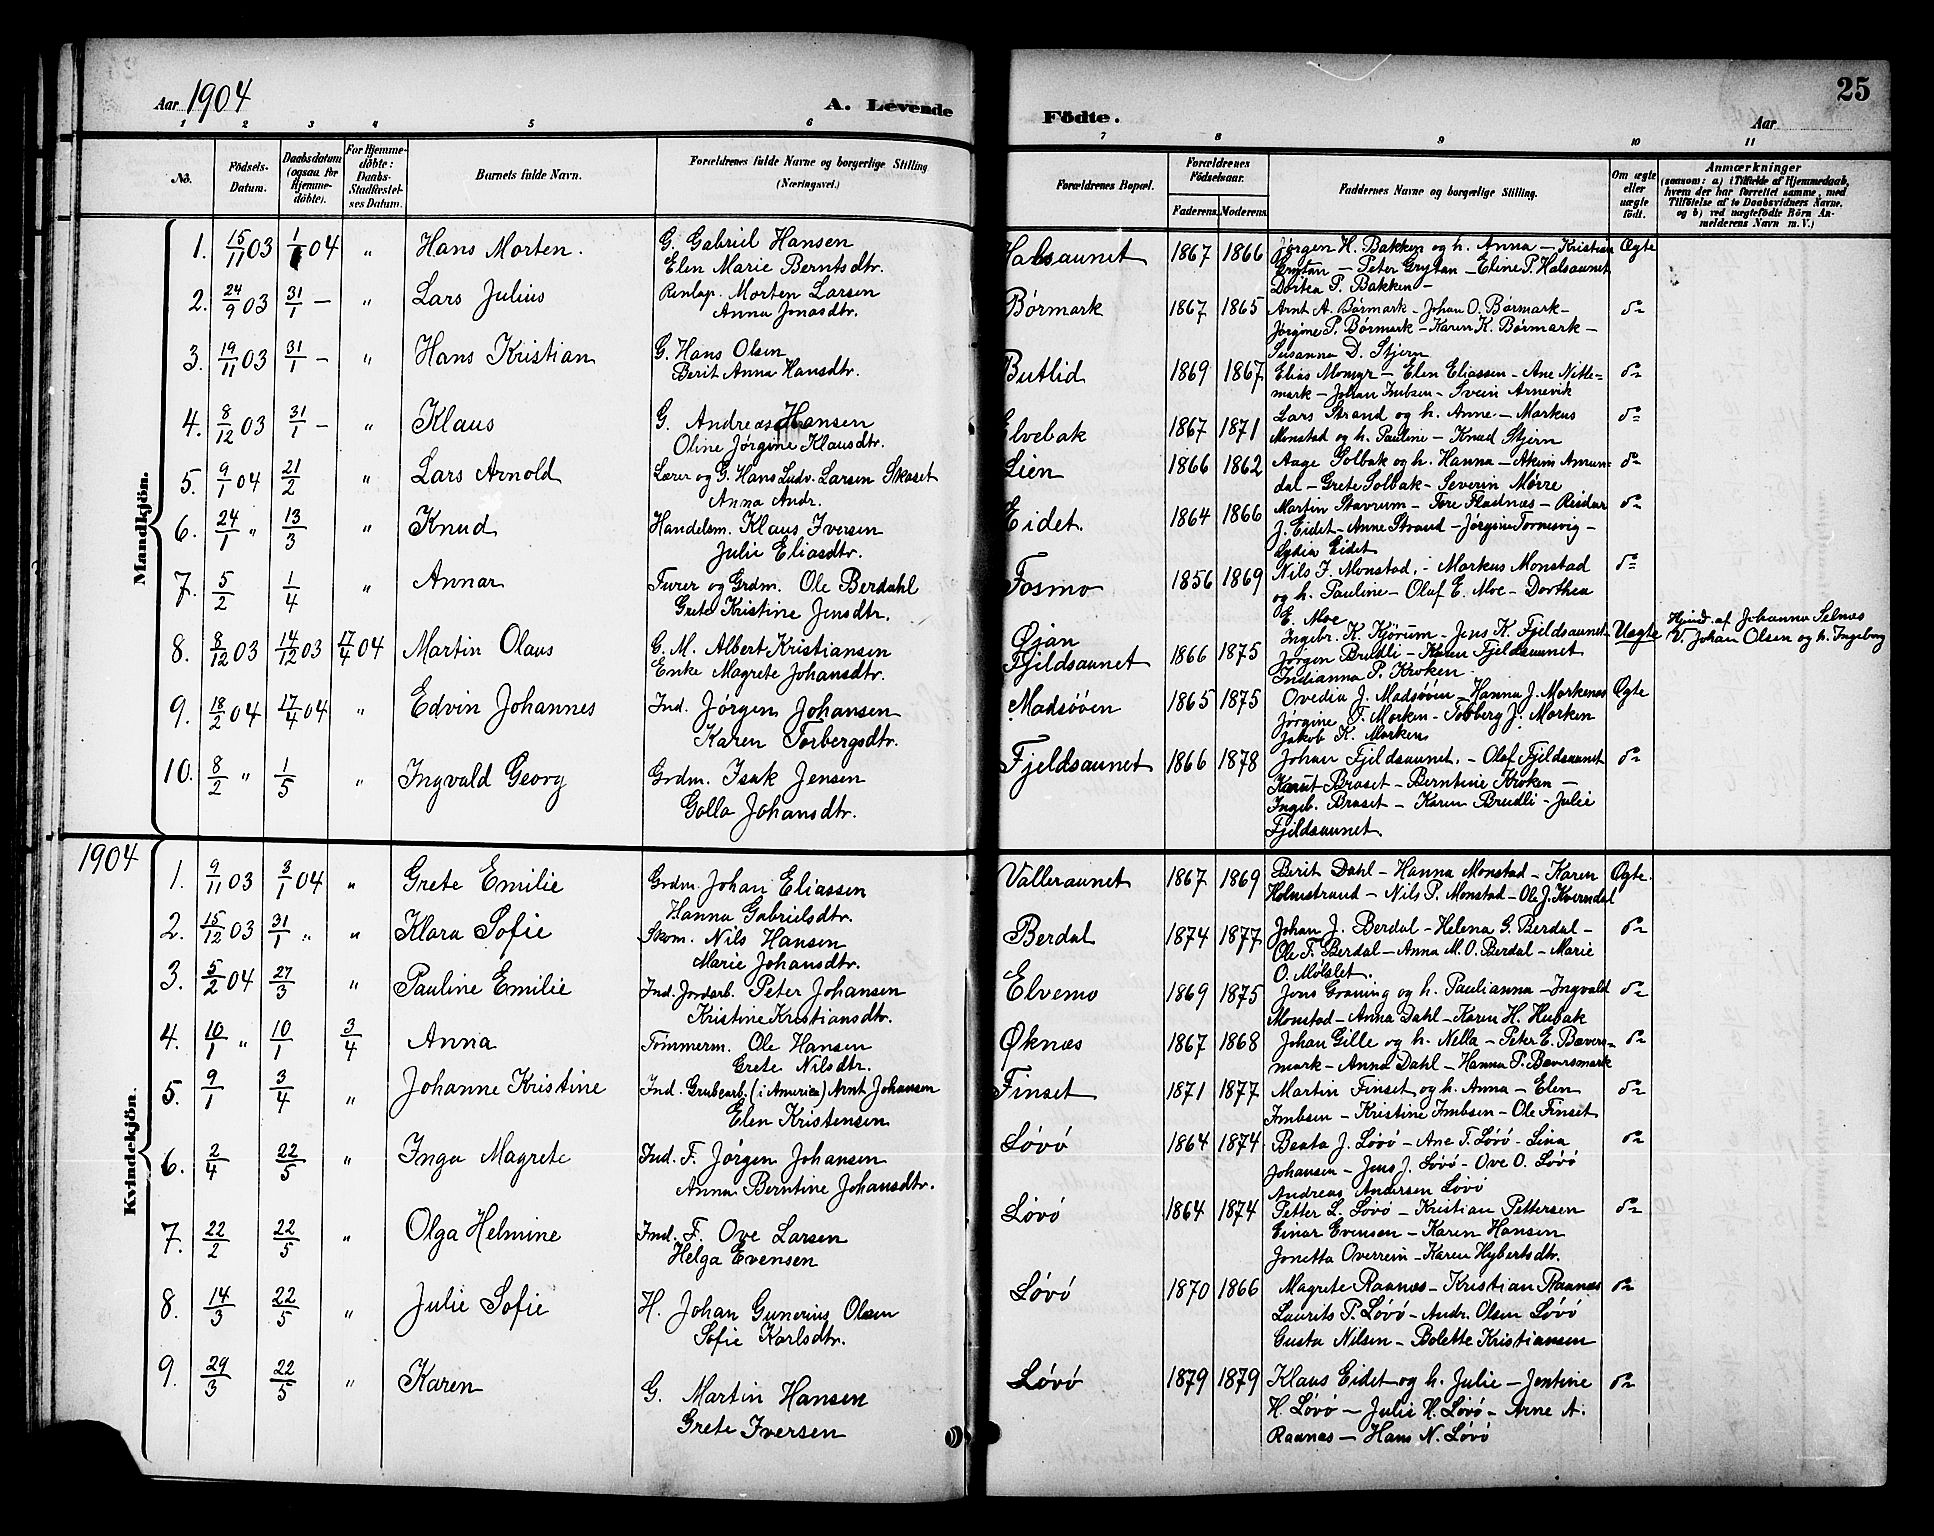 25
Aar 1904 A. Levende Födte. Aar
1 2 3 4 5 6 7 8 9 10 11
No. Födsels-Datum. Daabsdatum (ogsaa for Hjemme-döbte). For Hjemme-döbte: Daabs-Stadfæstel-ses Datum. Barnets fulde Navn. Forældrenes fulde Navne og borgerlige Stilling (Næringsvei.) Forældrenes Bopæl. Forældrenes Födselsaar. Faderens. Moderens. Faddernes Navne og borgerlige Stilling. Om ægte eller uægte födt. Anmærkninger (saasom: a) i Tilfælde af Hjemmedaab, hvem der har forrettet samme, med Tilföielse af to Daabsvidners Navne. og b) ved uægtefödte Börn An-melderens Navn m. V.)
Mandkjön.
1. 15/11 03 1/1 04 " Hans Morten. G. Gabriel Hansen Halsaunet 1867 1866 Jørgen H. Bakken og h. Anna – Kristian Ægte
Elen Marie Berntsdtr. Grytan – Peter Grytan – Eline P. Halsaunet
Dortea P. Bakken –
2. 24/9 03 31/1 – " Lars Julius Renlap. Morten Larsen Børmark 1867 1865 Arnt A. Børmark – Johan O. Børmark – do
Anna Jonasdtr. Jørgine P. Børmark – Karen K. Børmark –
Susanna D. Stjern
3. 19/11 03 31/1 – " Hans Kristian G. Hans Olsen Butlid 1869 1867 Elias Momyr – Elen Eliassen – Ane Nitte= do
Berit Anna Hansdtr. mark – Johan Imbsen – Svein Arnevik
4. 8/12 03 31/1 – " Klaus G. Andreas Hansen Elvebak 1867 1871 Lars Strand og h. Anne – Markus do
Oline Jørgine Klausdtr. Monstad og h. Pauline – Knud Stjern
5. 9/1 04 21/2 " Lars Arnold Lærer og G. Hans Ludv. Larsen Skaset Lien 1866 1862 Aage Solbak og h. Hanna – Akim Amun- do
Anna Andr. dal – Grete Solbak – Severin Mørre
6. 24/1 " 13/3 " Knud Handelsm. Klaus Iversen Eidet. 1864 1866 Martin Stavrum – Tore Fladnæs – Reidar do
Julie Eliasdtr. J. Eidet – Anne Strand – Jørgine Tornesvig –
Lydia Eidet
7. 5/2 1/4 " Annar Furer og Grdm. Ole Berdahl Fosmo 1856 1869 Nils J. Monstad. – Markus Monstad do
Grete Kristine Jensdtr. og h. Pauline – Olaf E. Moe – Dorthea
E. Moe
8. 8/12 03 14/12 03 17/4 04 Martin Olaus G. M. Albert Kristiansen Øjan 1866 1875 Ingebr. K. Kjørum – Jens K. Fjeldsaunet Uægte Hjmd. af Johanna Selnæs
Enke Magrete Johansdtr. Fjeldsaunet Jørgen Brudli – Karen Fjeldsaunet V. Johan Olsen og h. Ingeborg
Indianna P. Kroken –
9. 18/2 04 17/4 04 " Edvin Johannes Ind. Jørgen Johansen Madsøöen 1865 1875 Ovedia J. Madsøöen – Hanna J. Morkenas Ægte
Karen Torbergsdtr. Jørgine T. Morken – Tobberg J. Morken
Jakob K. Morken
10. 8/2 " 1/5 " Ingvald Georg Grdm. Isak Jensen Fjeldsaunet 1866 1878 Johan Fjeldsaunet. – Olaf Fjeldsaunet do
Golla Johansdtr. Knut Braset – Berntine Kroken –
Ingeb. Braset – Karen Brudli – Julie
Fjeldsaunet.
1904 Kvindekjön.
1. 9/11 03 3/1 04 " Grete Emilie Grdm. Johan Eliassen Valleraunet 1867 1869 Berit Dahl – Hanna Monstad – Karen Ægte.
Hanna Gabrielsdtr. Holmstrand – Nils P. Monstad – Ole J. Kverndal
2. 15/12 03 31/1 " " Klara Sofie Skom. Nils Hansen Berdal 1874 1877 Johan J. Berdal – Helena G. Berdal – do
Marie Johansdtr. Ole F. Berdal – Anna M. O. Berdal – Marie
O. Mølslet.
3. 5/2 04 27/3 " Pauline Emilie Ind. Jordarb. Peter Johansen Elvemo 1869 1875 Jens Graning og h. Paulianna – Ingvald do
Kristine Kristiansdtr. Monstad – Anna Dahl – Karen H. Hubak
4. 10/1 " 10/1 3/4 Anna Tømmerm. Ole Hansen Øknæs 1867 1868 Johan Gille og h. Nella – Peter E. Bæver- do
Grete Nilsdtr. mark – Anna Dahl – Hanna P. Bæversmark
5. 9/1 3/4 " Johanne Kristine Ind. Grubearb. (i Amerika) Arnt Johansen Finset 1871 1877 Martin Finset og h. Anna – Elen do
Elen Kristensen Imbsen – Kristine Imbsen – Ole Finset
6. 2/4 22/5 " Inga Magrete Ind. F. Jørgen Johansen Løvø 1864 1874 Beata J. Løvø – Ane T. Løvø – Lina do
Anna Berntine Johansdtr. Johansen – Jens J. Løvø – Ove O. Løvø
Andreas Andersen Løvø
7. 22/2 22/5 " Olga Helmine Ind. F. Ove Larsen Løvø 1864 1874 Petter L. Løvø – Kristian Pettersen do
Helga Evensen Einar Evensen – Karen Hansen
Jonetta Overrein – Karen Hybertsdtr.
8. 14/3 22/5 " Julie Sofie H. Johan Gunerius Olsen Løvø 1870 1866 Magrete Raanæs – Kristian Raanæs do
Sofie Karlsdtr. Laurits P. Løvø – Andr. Olsen Løvø
Gusta Nilsen – Bolette Kristiansen
9. 29/3 22/5 " Karen G. Martin Hansen Løvø 1879 1879 Klaus Eidet og h. Julie – Jentine do
Grete Iversen H. Løvø – Julie H. Løvø – Arne A.
Raanæs – Hans N. Løvø